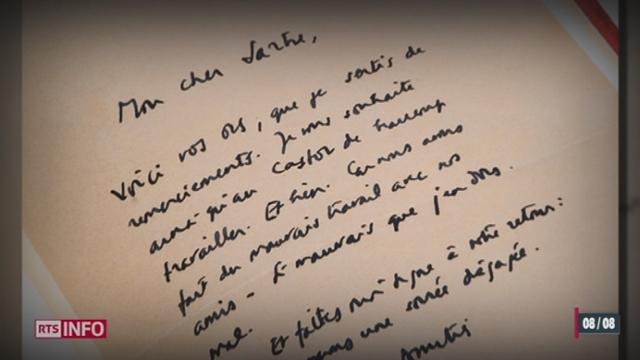 Mon cher Sartre,
Voici vos ors, que je sertis de
remerciements. Je vous souhaite
ainsi qu'au Castor de beaucoup
travailler. Et bien. Car nous avons
fait du mauvais travail avec nos
amis - Si mauvais que j'en dors
mal. Et faites moi signe à votre retour:
une soirée dégagée.
Amitiés
RTS INFO
08/08